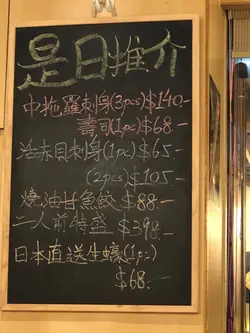 是日推介
中拖羅刺身(3pcs)$140.-
壽司(1pc)$68.-
活赤貝刺身(1pc)$65.-
(2pcs)$105.-
燒油甘魚鮫 $88.-
二人前特盛 $398.-
日本直送生蠔(1pc)
$68.-